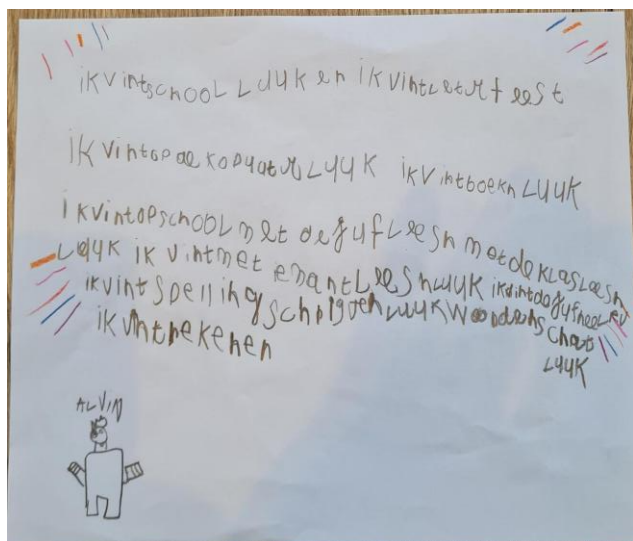 ikvintschooL LuuK en ikvintLetrfeest
iK vintopdekopuatrLuuK ikvintboekn LuuK
ikvintopschooL met dejufLeesn metdeklasLeesn
LuuK ik vintmet emantLeesnLuuk ikvintdejufheeLLeu
ikvintspellingschrigvenLuuk Woordenschat
ikvintrekenen LuuK
ALVIN